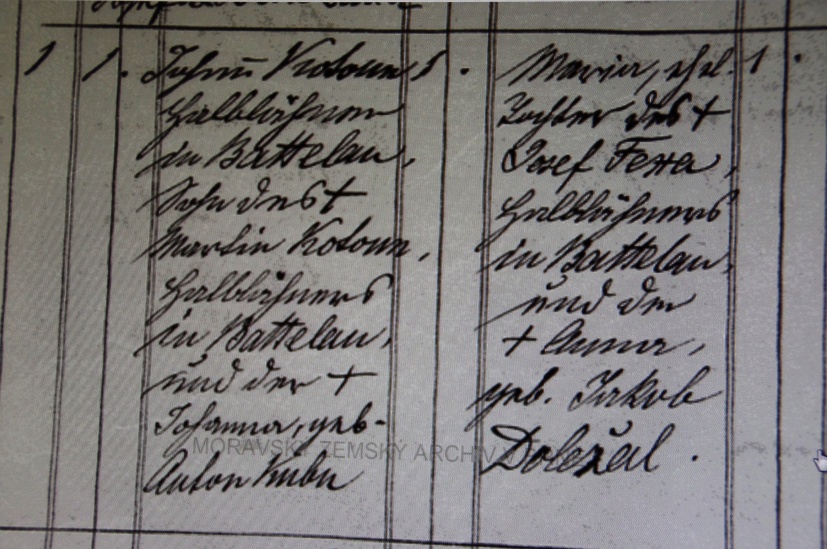 1 1. Johann Kotoun 1.
Halblähner
in Battelau,
Sohn des +
Martin Kotoun,
Halblähners
in Battelau,
und der +
Johanna, geb.
Anton Kuba
Maria, ehel. 1.
Tochter des +
Josef Fexa,
Halblähners
in Battelau,
und der
+ Anna,
geb. Jakob
Doležal.
MORAVSKÝ ZEMSKÝ ARCHIV V